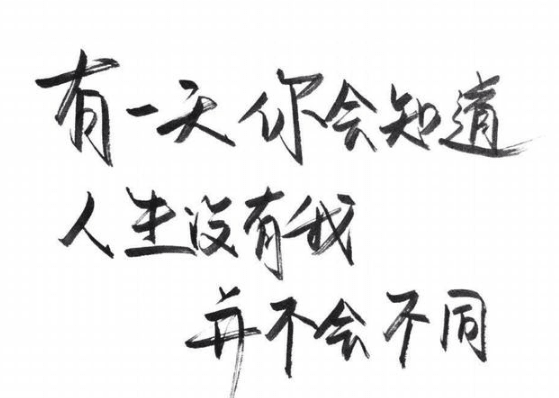 有一天你会知道
人生没有我
并不会不同